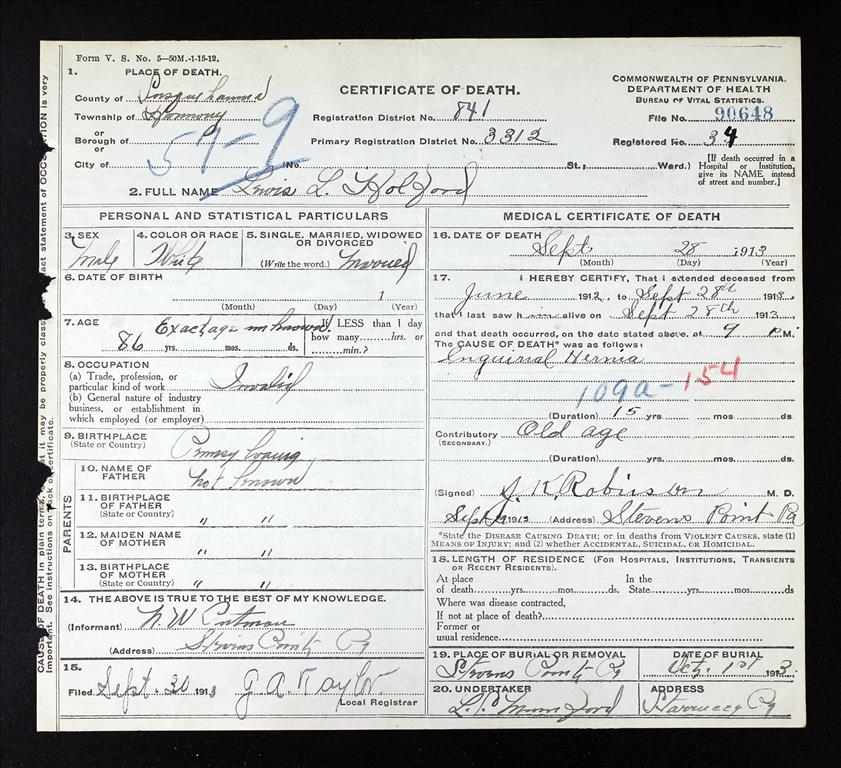 Form V. S. No. 5—50M.-1-15-12.
1. PLACE OF DEATH.
County of Susquehanna
Township of Harmony
or
Borough of
or
City of
57-9
(No. St., Ward.)
CERTIFICATE OF DEATH.
Registration District No. 841
Primary Registration District No. 3312
COMMONWEALTH OF PENNSYLVANIA.
DEPARTMENT OF HEALTH
BUREAU OF VITAL STATISTICS.
File No. 90648
Registered No. 34
[If death occurred in a
Hospital or Institution,
give its NAME instead
of street and number.]
2. FULL NAME Lewis L. Holford
PERSONAL AND STATISTICAL PARTICULARS
3. SEX
Male
4. COLOR OR RACE
White
5. SINGLE, MARRIED, WIDOWED
OR DIVORCED
(Write the word.)
6. DATE OF BIRTH
1
(Month) (Day) (Year)
7. AGE Exact age unknown
86 yrs. mos. ds.
If LESS than 1 day
how many hrs. or
min.?
8. OCCUPATION
(a) Trade, profession, or
particular kind of work Invalid
(b) General nature of industry
business, or establishment in
which employed (or employer)
9. BIRTHPLACE
(State or Country)
PARENTS
10. NAME OF
FATHER not known
11. BIRTHPLACE
OF FATHER
(State or Country) " "
12. MAIDEN NAME
OF MOTHER " "
13. BIRTHPLACE
OF MOTHER
(State or Country) " "
14. THE ABOVE IS TRUE TO THE BEST OF MY KNOWLEDGE.
(Informant) N. W. Putman
(Address) Stevens Point Pa
15.
Filed Sept. 30 1913 G. A. Taylor
Local Registrar
MEDICAL CERTIFICATE OF DEATH
16. DATE OF DEATH
Sept 28 1913
(Month) (Day) (Year)
17. I HEREBY CERTIFY, That I attended deceased from
June 1912, to Sept 28th 1913,
that I last saw h im alive on Sept 28th 1913
and that death occurred, on the date stated above, at 9 P.M.
The CAUSE OF DEATH* was as follows:
Inguinal Hernia
109a-154
(Duration) 15 yrs mos ds
Contributory Old age
(SECONDARY.)
(Duration) yrs. mos. ds.
(Signed) J. K. Robinson M. D.
Sept 1913 (Address) Stevens Point Pa
*State the DISEASE CAUSING DEATH; or in deaths from VIOLENT CAUSES, state (1)
MEANS OF INJURY; and (2) whether ACCIDENTAL, SUICIDAL, OR HOMICIDAL.
18. LENGTH OF RESIDENCE (FOR HOSPITALS, INSTITUTIONS, TRANSIENTS
OR RECENT RESIDENTS).
At place
of death yrs. mos. ds.
In the
State yrs. mos. ds
Where was disease contracted,
If not at place of death?
Former or
usual residence
19. PLACE OF BURIAL OR REMOVAL
Stevens Point Pa
DATE OF BURIAL
Oct. 1st 1913.
20. UNDERTAKER
L. P. Mumford
ADDRESS
Starrucca Pa
CAUSE OF DEATH in plain terms,
it may be properly class
act statement of OCCUPATION is very
Important. See instructions on back of certificate.